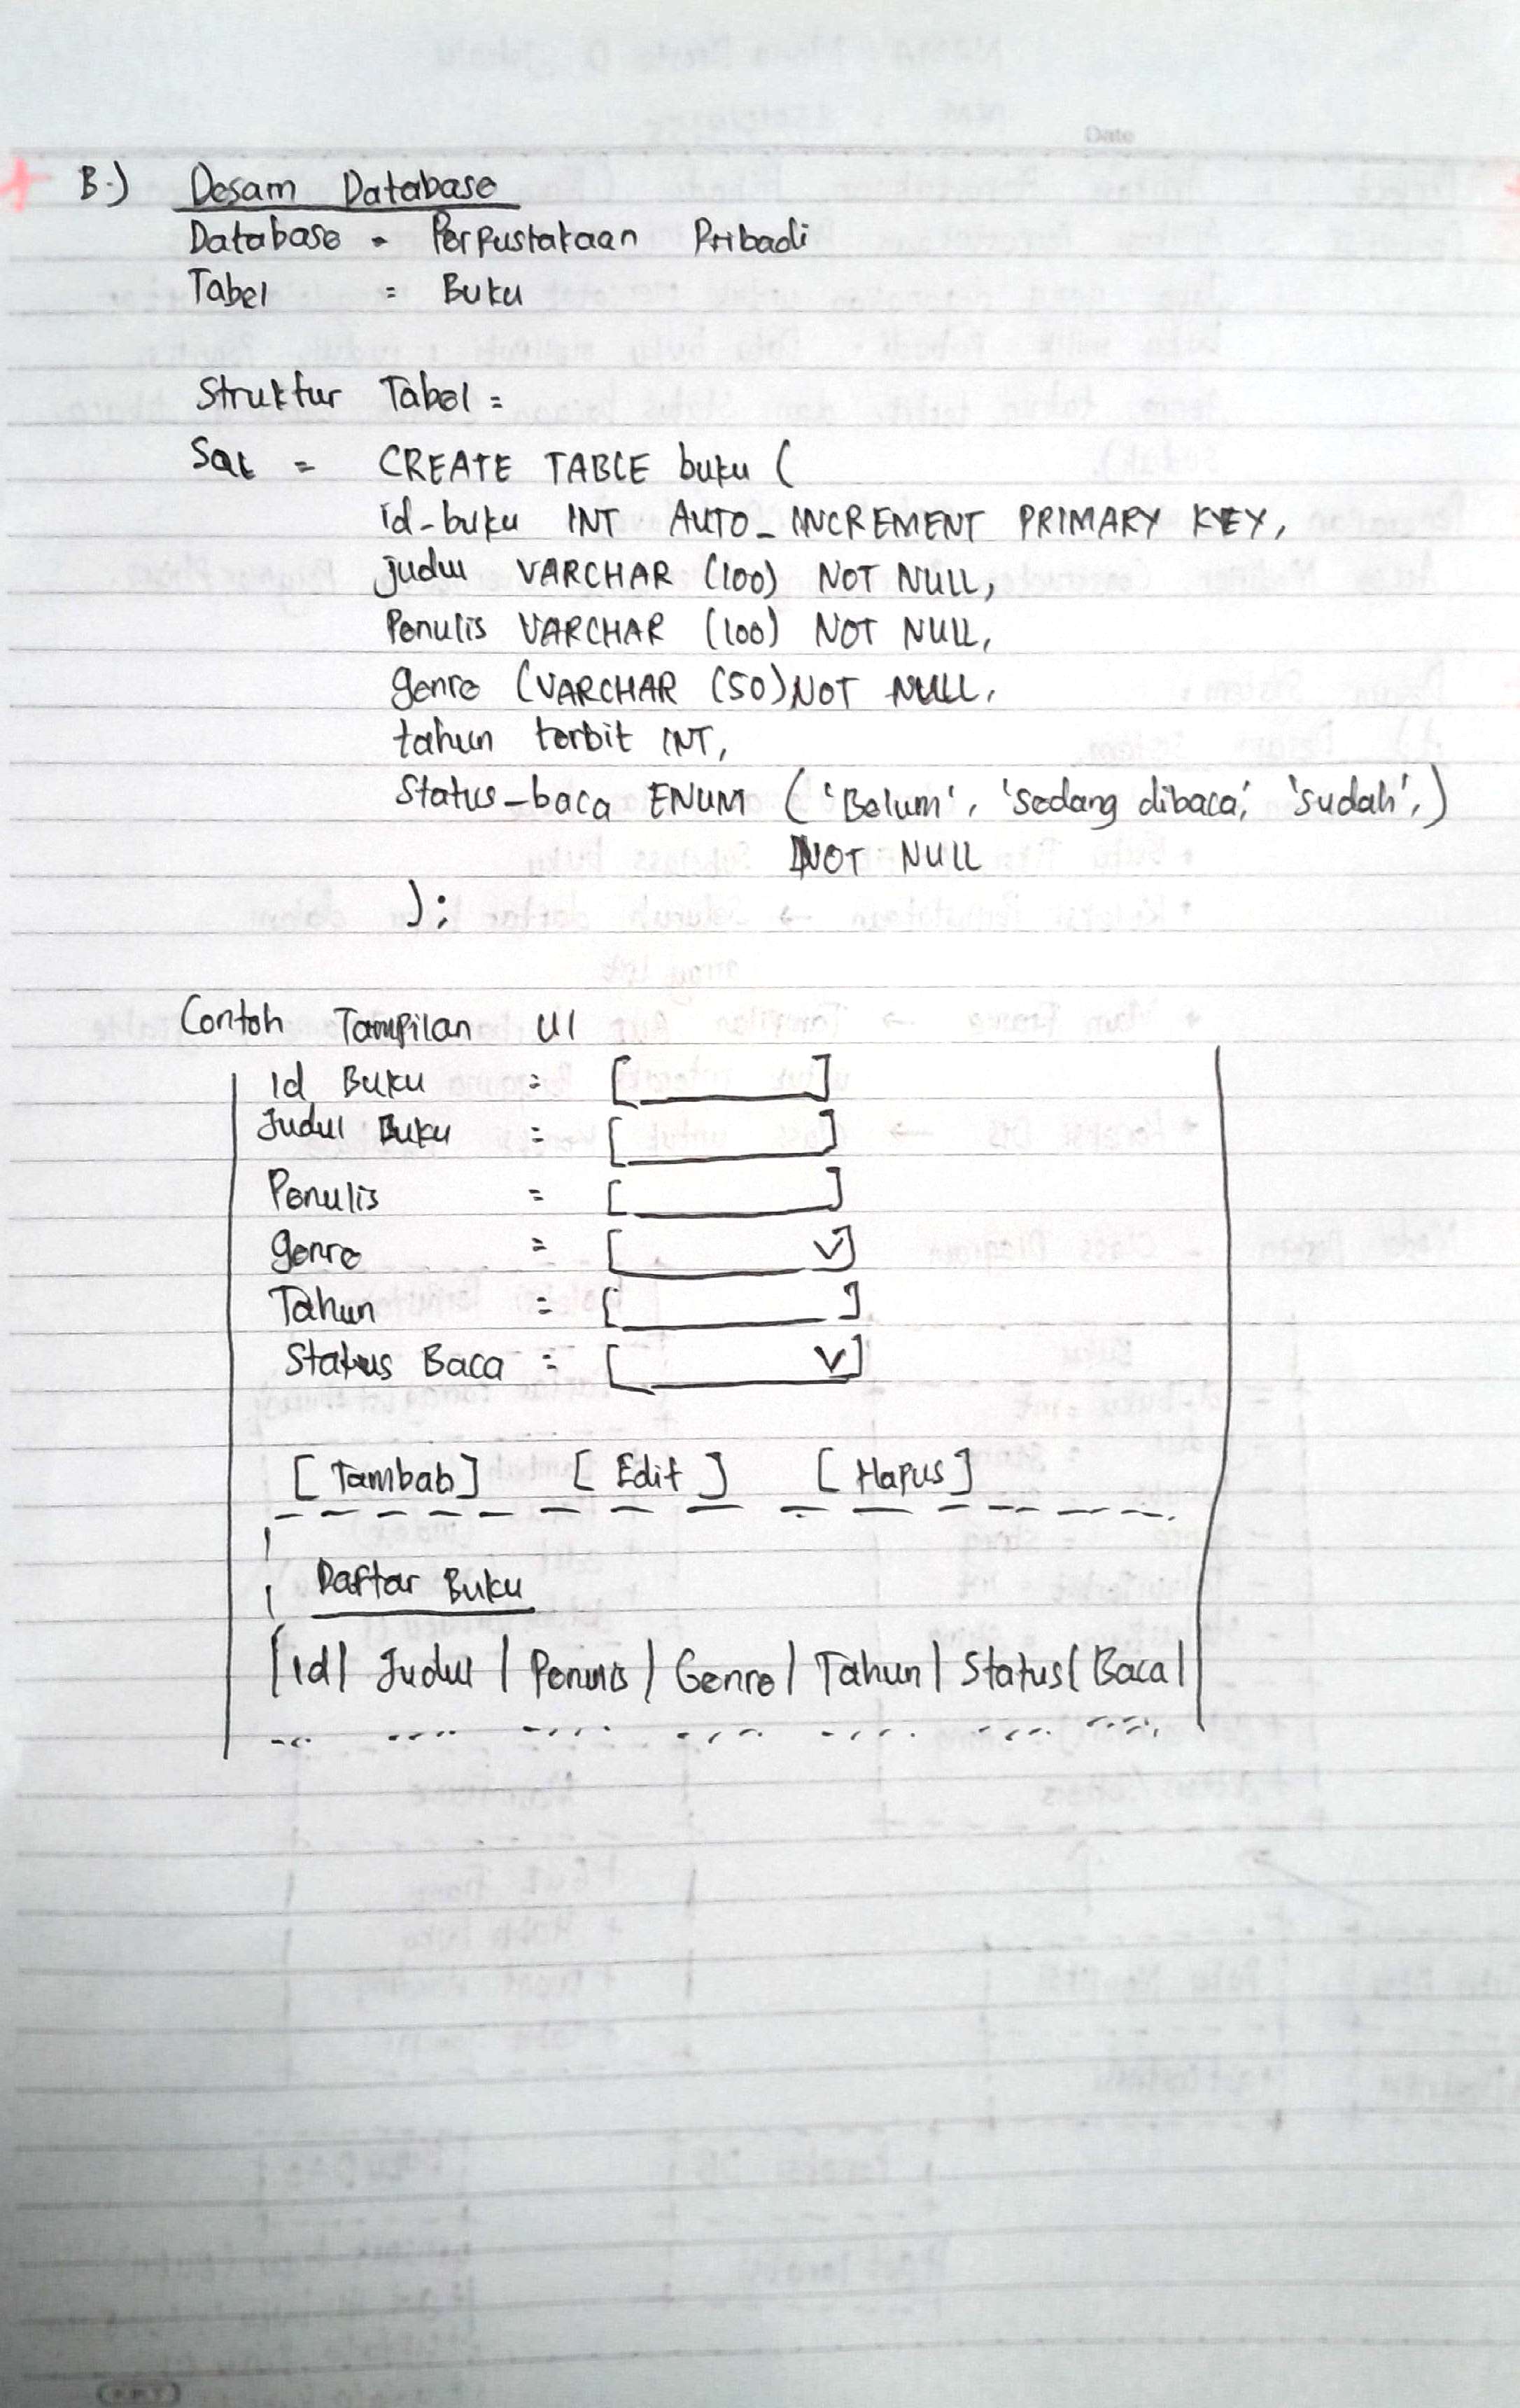 Date
B.) Desain Database
Database = Perpustakaan Pribadi
Tabel = Buku
Struktur Tabel =
SQL = CREATE TABLE buku (
id-buku INT AUTO_INCREMENT PRIMARY KEY,
judul VARCHAR (100) NOT NULL,
Penulis VARCHAR (100) NOT NULL,
genre (VARCHAR (50) NOT NULL,
tahun terbit INT,
Status-baca ENUM ('Belum', 'Sedang dibaca', 'sudah',)
NOT NULL
);
Contoh Tampilan UI
Id Buku = [ ]
Judul Buku = [ ]
Penulis = [ ]
genre = [ V]
Tahun = [ ]
Status Baca = [ V]
[Tambah] [Edit] [Hapus]
Daftar Buku
|Id| Judul | Penulis | Genre | Tahun | Status | Baca |